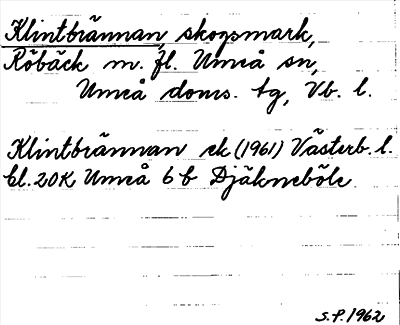 Klintbrännan, skogsmark,
Röbäck m. fl. Umeå sn,
Umeå doms. tg, Vb. l.
Klintbrännan ek (1961) Västerb. l.
bl. 20K Umeå 6 b Djäkneböle
S.P. 1962